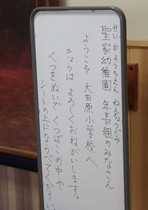 せいかようちえん ねんちょうぐみ
聖家幼稚園 年長組のみなさん
ようこそ 大田原小学校へ
きょうは よろしくおねがいします。
くつをぬいで くつばこの中や
シートの上にならべてください。